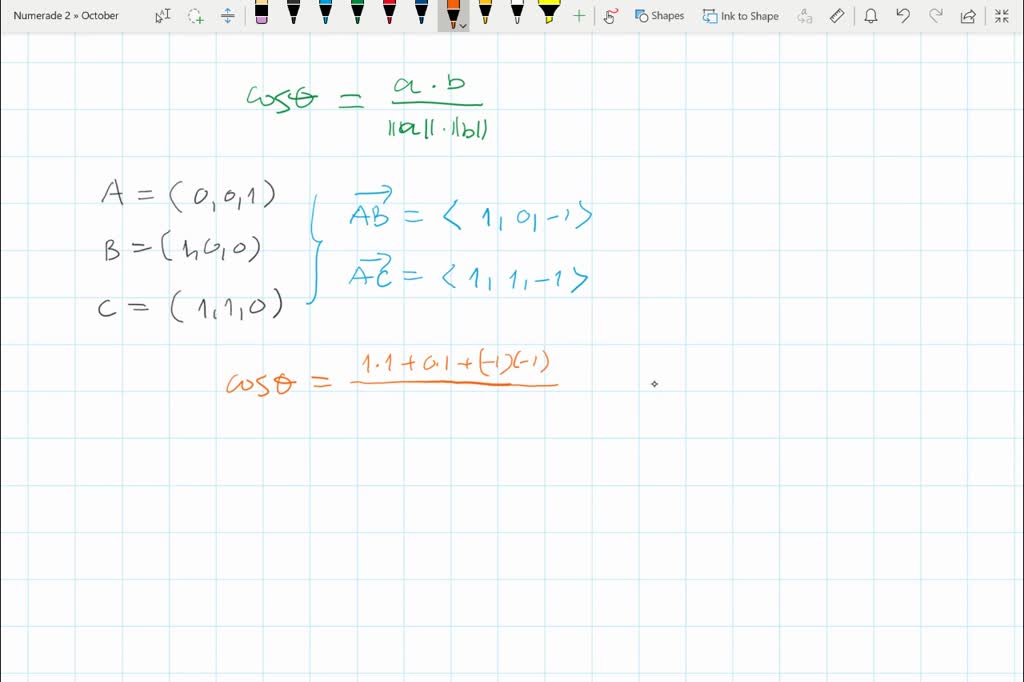 Numerade 2 » October
Shapes
Ink to Shape
cosθ = a · b / ||a|| · ||b||
A = (0,0,1)
B = (1,0,0)
C = (1,1,0)
AB = < 1, 0, -1>
AC = < 1, 1, -1>
cosθ = 1·1 + 0·1 + (-1)(-1)